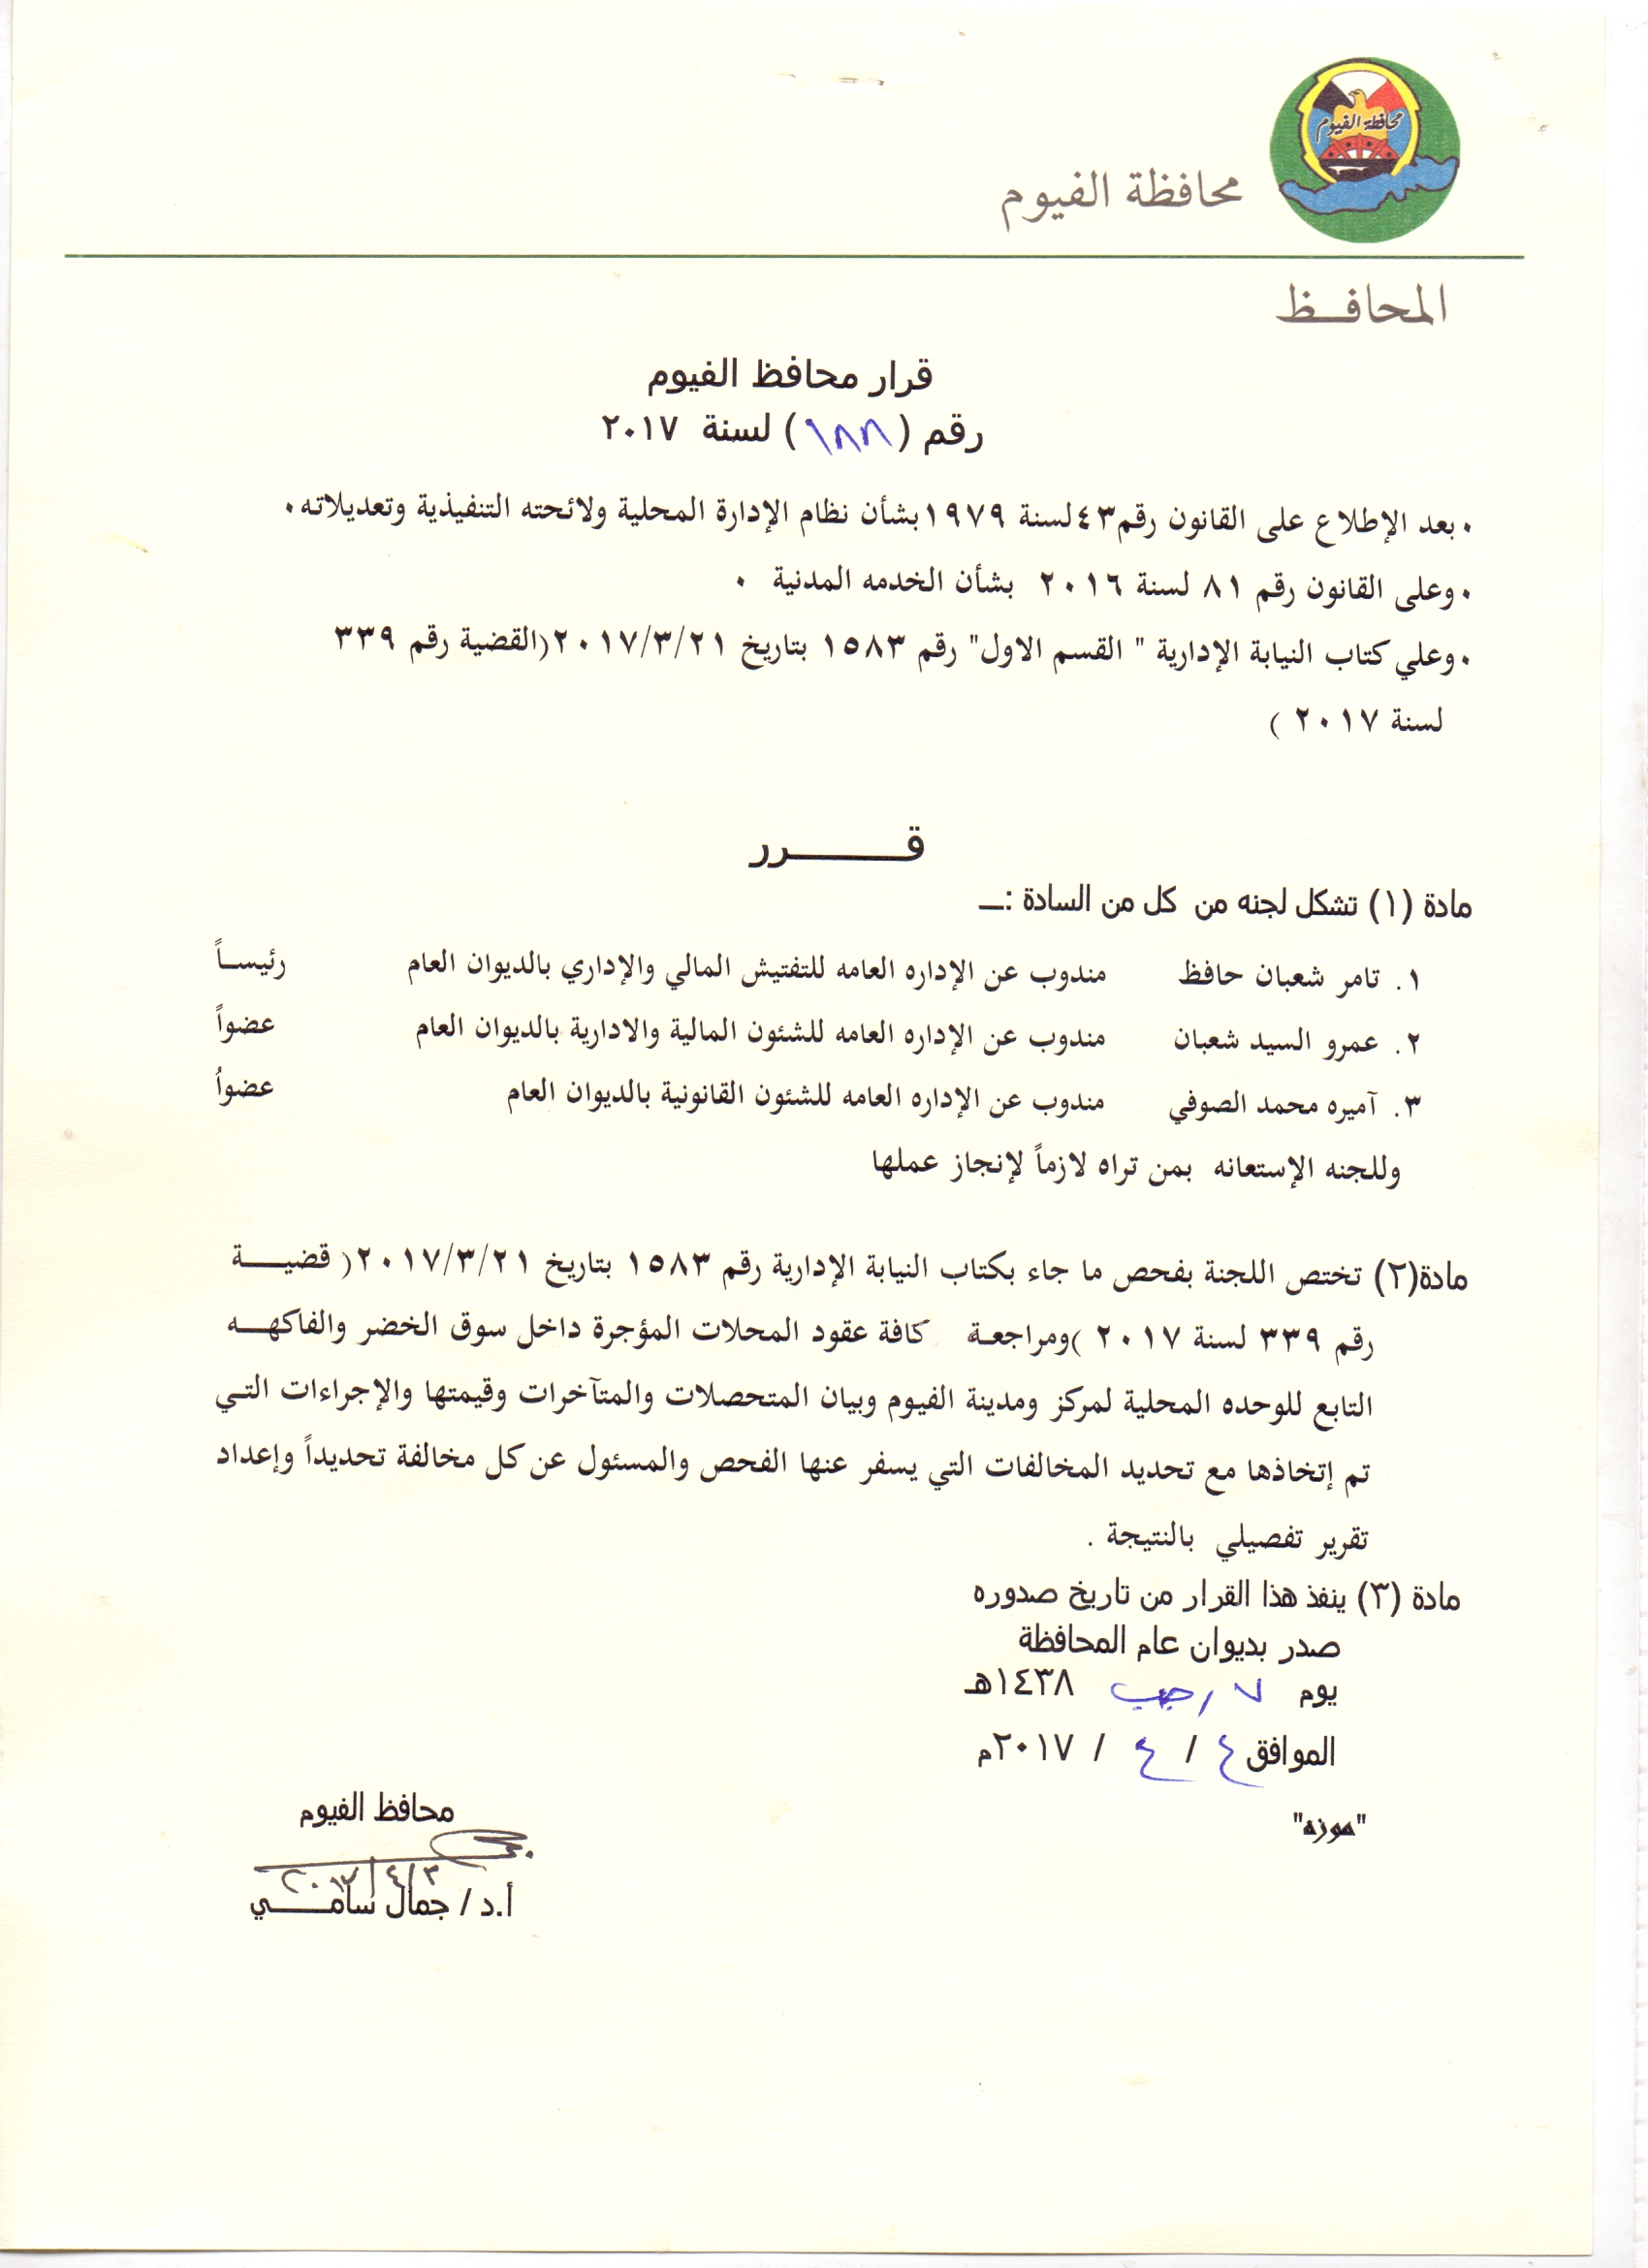 محافظة الفيوم
محافظة الفيوم
المحافـــظ
قرار محافظ الفيوم
رقم (١٨٨) لسنة ٢٠١٧
٠ بعد الإطلاع على القانون رقم٤٣لسنة ١٩٧٩بشأن نظام الإدارة المحلية ولائحته التنفيذية وتعديلاته٠
٠ وعلى القانون رقم ٨١ لسنة ٢٠١٦ بشأن الخدمه المدنية ٠
٠ وعلي كتاب النيابة الإدارية " القسم الاول" رقم ١٥٨٣ بتاريخ ٢٠١٧/٣/٢١(القضية رقم ٣٣٩
لسنة ٢٠١٧ )
قــــــــرر
مادة (١) تشكل لجنه من كل من السادة :ــ
١. تامر شعبان حافظ مندوب عن الإداره العامه للتفتيش المالي والإداري بالديوان العام رئيســاً
٢. عمرو السيد شعبان مندوب عن الإداره العامه للشئون المالية والادارية بالديوان العام عضواً
٣. آميره محمد الصوفي مندوب عن الإداره العامه للشئون القانونية بالديوان العام عضواُ
وللجنه الإستعانه بمن تراه لازماً لإنجاز عملها
مادة(٢) تختص اللجنة بفحص ما جاء بكتاب النيابة الإدارية رقم ١٥٨٣ بتاريخ ٢٠١٧/٣/٢١( قضيــــة
رقم ٣٣٩ لسنة ٢٠١٧ )ومراجعـة كافة عقود المحلات المؤجرة داخل سوق الخضر والفاكهــــه
التابع للوحده المحلية لمركز ومدينة الفيوم وبيان المتحصلات والمتآخرات وقيمتها والإجراءات التـي
تم إتخاذها مع تحديد المخالفات التي يسفر عنها الفحص والمسئول عن كل مخالفة تحديداً وإعداد
تقرير تفصيلي بالنتيجة .
مادة (٣) ينفذ هذا القرار من تاريخ صدوره
صدر بديوان عام المحافظة
يوم ٧ رجب ١٤٣٨هـ
الموافق ٤ / ٤ / ٢٠١٧م
"موزه"
محافظ الفيوم
٢٠١٧/٤/٣
أ.د / جمال سامـــــي